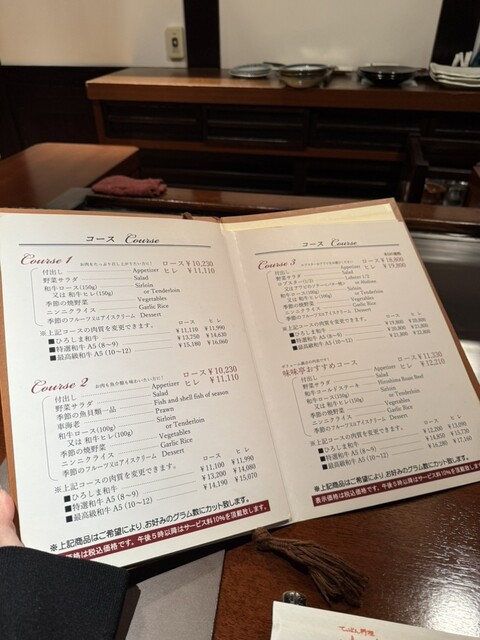 コース Course
Course 1 お肉をたっぷり召し上がりたい方に! ロース ¥10,230
ヒレ ¥11,110
付出し Appetizer
野菜サラダ Salad
和牛ロース(150g) Sirloin
又は 和牛ヒレ(150g) or Tenderloin
季節の焼野菜 Vegetables
ニンニクライス Garlic Rice
季節のフルーツ又はアイスクリーム Dessert
※上記コースの肉質を変更できます。 ロース ヒレ
■ひろしま和牛 ¥11,110 ¥11,990
■特選和牛 A5 (8～9) ¥13,750 ¥14,630
■最高級和牛 A5 (10～12) ¥15,180 ¥16,060
Course 2 お肉も魚介類も味わいたい方に! ロース ¥10,230
ヒレ ¥11,110
付出し Appetizer
野菜サラダ Salad
季節の魚貝類一品 Fish and shell fish of season
車海老 Prawn
和牛ロース(100g) Sirloin
又は 和牛ヒレ(100g) or Tenderloin
季節の焼野菜 Vegetables
ニンニクライス Garlic Rice
季節のフルーツ又はアイスクリーム Dessert
※上記コースの肉質を変更できます。 ロース ヒレ
■ひろしま和牛 ¥11,100 ¥11,990
■特選和牛 A5 (8～9) ¥13,200 ¥14,080
■最高級和牛 A5 (10～12) ¥14,190 ¥15,070
※上記商品はご希望により、お好みのグラム数にカット致します。
価格は税込価格です。午後5時以降はサービス料10%を頂戴致します。
コース Course
Course 3 ロース ¥18,800
ヒレ ¥19,800
付出し Appetizer
野菜サラダ Salad
ロブスター(1/2) Lobster 1/2
or Abalone
和牛ロース(100g) Sirloin
又は 和牛ヒレ(100g) or Tenderloin
季節の焼野菜 Vegetables
ニンニクライス Garlic Rice
季節のフルーツ又はアイスクリーム Dessert
※上記コースの肉質を変更できます。 ロース ヒレ
■ひろしま和牛
■特選和牛 A5 (8～9)
■最高級和牛 A5 (10～12) ¥21,800 ¥22,800
味味亭おすすめコース ロース ¥11,330
ヒレ ¥12,210
付出し Appetizer
野菜サラダ Salad
和牛コールドステーキ Hiroshima Roast Beef
和牛ロース(100g) Sirloin
又は 和牛ヒレ(100g) or Tenderloin
季節の焼野菜 Vegetables
ニンニクライス Garlic Rice
季節のフルーツ又はアイスクリーム Dessert
※上記コースの肉質を変更できます。 ロース ヒレ
■ひろしま和牛 ¥12,200 ¥13,090
■特選和牛 A5 (8～9) ¥14,850 ¥15,730
■最高級和牛 A5 (10～12) ¥16,280 ¥17,160
※上記商品はご希望により、お好みのグラム数にカット致します。
表示価格は税込価格です。午後5時以降はサービス料10%を頂戴致します。
てっぱん料理